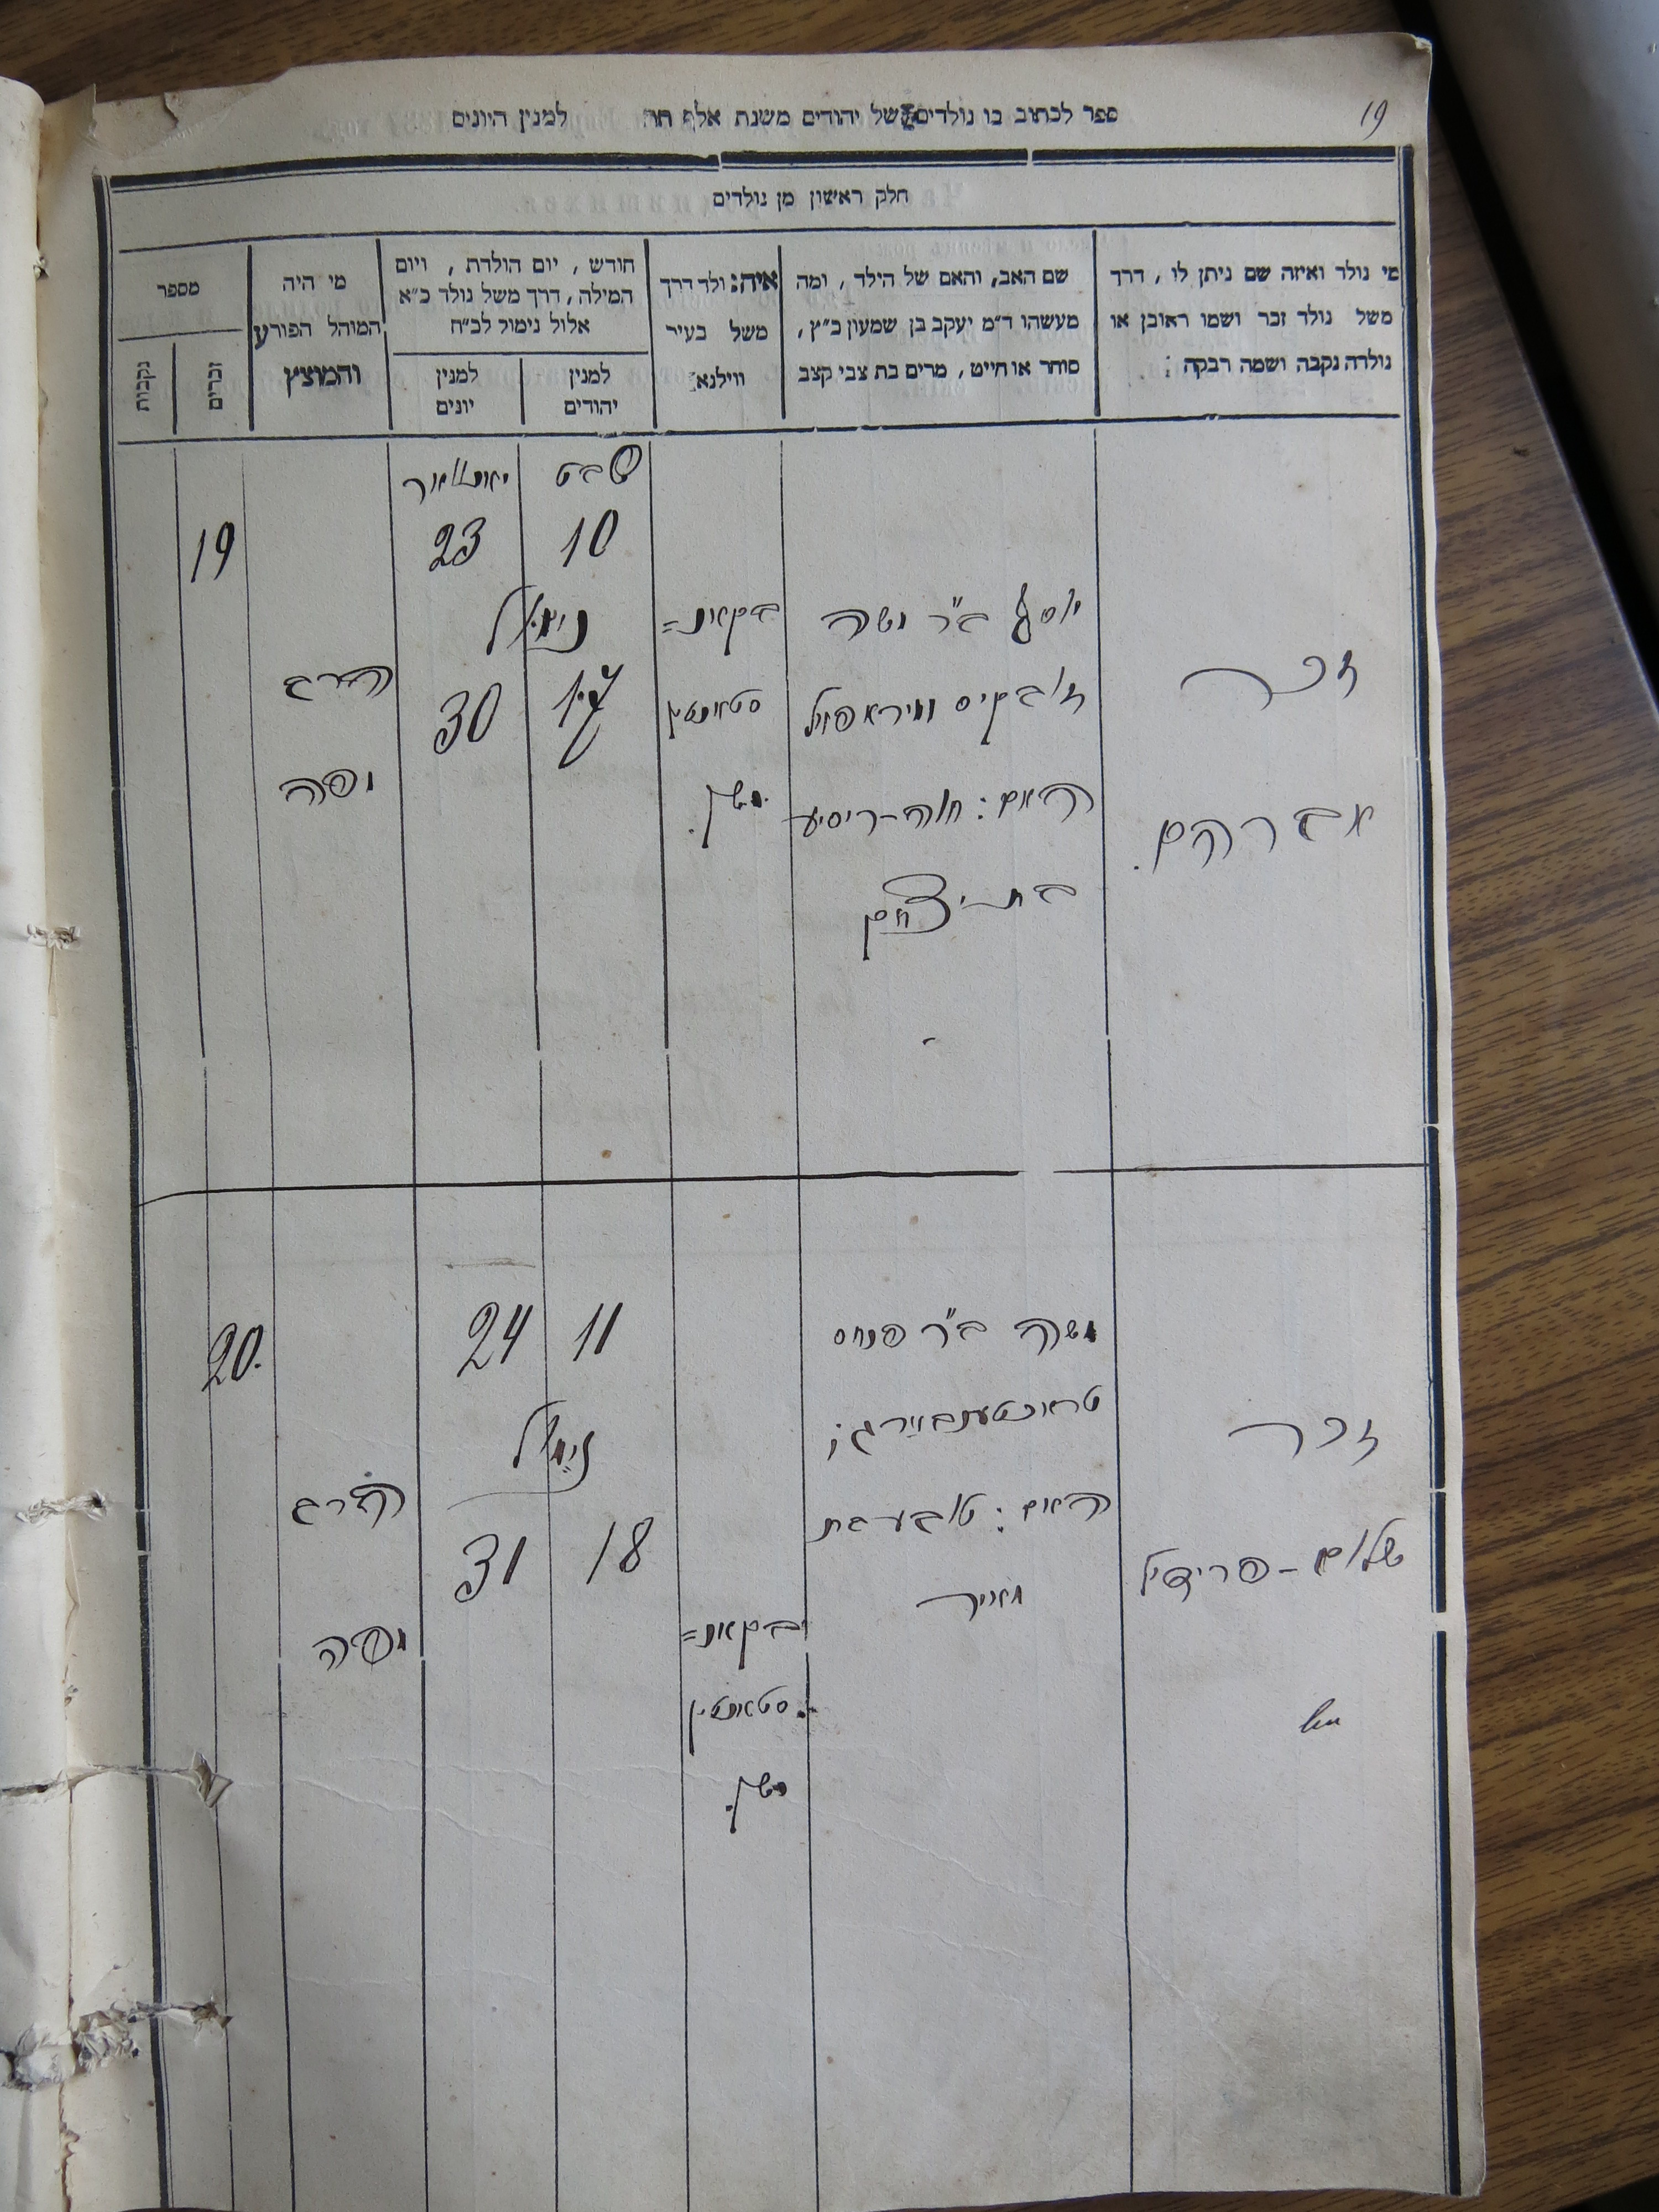 19
ספר לכתוב בו נולדים של יהודים משנת אלף תת למנין היונים
חלק ראשון מן נולדים
מי נולד ואיזה שם ניתן לו, דרך
משל נולד זכר ושמו ראובן או
נולדה נקבה ושמה רבקה:
שם האב, והאם של הילד, ומה
מעשהו ד״מ יעקב בן שמעון כ״ץ,
סוחר או חייט, מרים בת צבי קצב
איה: ולד דרך
משל בעיר
ווילנא:
חודש, יום הולדת, ויום
המילה, דרך משל נולד כ״א
אלול נימול לכ״ח
למנין
יהודים
למנין
יונים
מי היה
המוהל הפורע
והמוצץ
מספר
זכרים
נקבות
זכר
אברהם.
יוסף ב״ר משה
האם: חוה-ריסיע
בת
בקאנ=
סטאנטין
ישן.
שבט
10
נימול
17
יאנוואר
23
30
הרב
יפה
19
זכר
שלום-פרידיל
משה ב״ר פנחס
טראכטענבוירג;
האם: טובע בת
מאיר
בקאנ=
סטאנטין
ישן.
11
נימול
18
24
31
הרב
יפה
20.